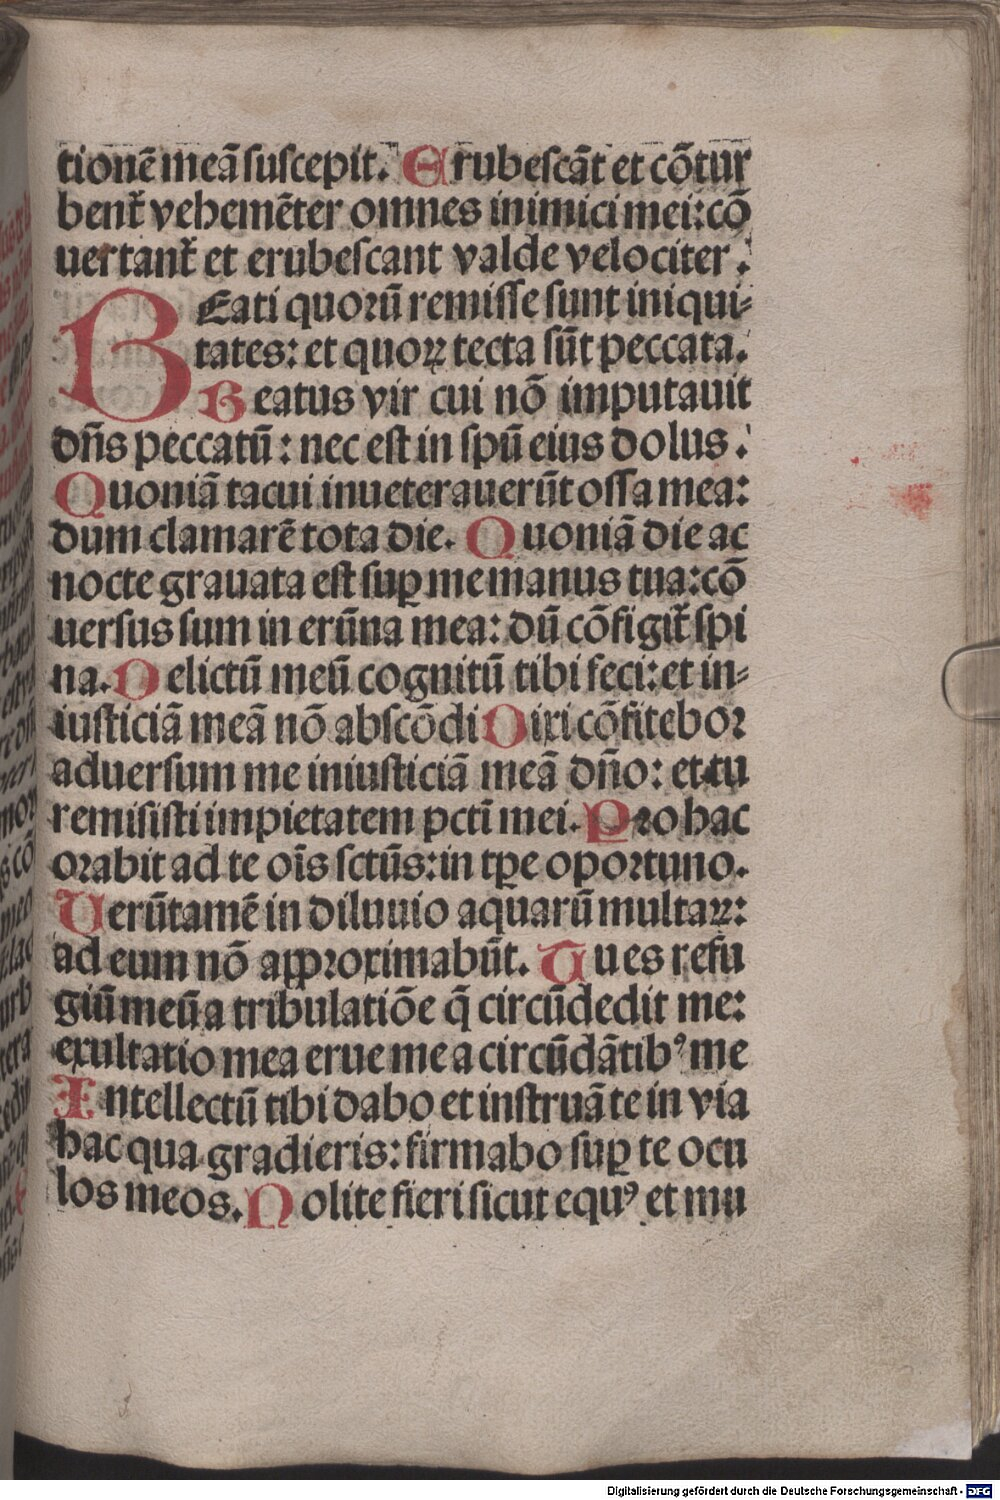 tionē meā suscepit. Erubescāt et cōtur
benť vehemēter omnes inimici mei: cō
uertanť et erubescant valde velociter.
BEati quorū remisse sunt iniqui-
tates: et quoꝝ tecta sūt peccata.
Beatus vir cui nō imputauit
dñs peccatū: nec est in spū eius dolus.
Quoniā tacui inueterauerūt ossa mea:
dum clamarē tota die. Quoniā die ac
nocte grauata est suꝑ me manus tua: cō
uersus sum in erūna mea: dū cōfigiť spi
na. Delictū meū cognitū tibi feci: et in-
iusticiā meā nō abscōdi Dixi cōfitebor
aduersum me iniusticiā meā dño: et tu
remisisti impietatem pctī mei. Pro hac
orabit ad te oīs sctūs: in tꝑe oportuno.
Uerūtamē in diluuio aquarū multaꝝ:
ad eum nō approximabūt. Tu es refu
giū meū a tribulatiōe q̄ circūdedit me:
exultatio mea erue me a circūdātibꝰ me
Intellectū tibi dabo et instruā te in via
hac qua gradieris: firmabo suꝑ te ocu
los meos. Nolite fieri sicut equꝰ et mu
Digitalisierung gefördert durch die Deutsche Forschungsgemeinschaft - DFG